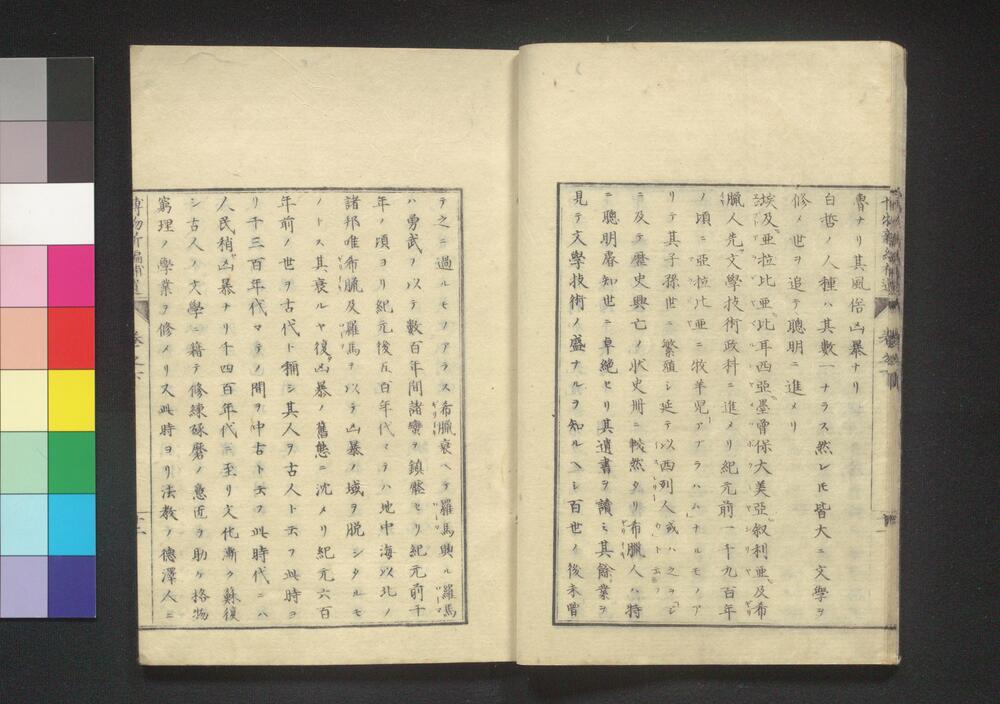 魯ナリ其風俗凶暴ナリ
白晳ノ人種ハ其數一ナラス然レ𪜈皆大ニ文學ヲ
修メ世ヲ追テ聰明ニ進メリ
埃及亜拉比亜比耳西亞墨曾保大美亞叙利亜及希
臘人先文學技術政科ニ進メリ紀元前一千九百年
ノ頃ニ亜拉比亜ニ牧羊児アブラハムナルモノア
リテ其子孫世ニ繁殖シ延テ以西列人或ハ之ヲ
ニ及テ歴史興亡ノ狀史冊ニ載然タリ希臘人ハ特
ニ聰明睿知世ニ卓絶セリ其遺書ヲ讀ミ其餘業ヲ
見テ文學技術ノ盛ナルヲ知ルヘシ百世ノ後未曾
テ之ニ過ルモノアラス希臘衰ヘテ羅馬興ル羅馬
ハ勇武ヲ以テ數百年間諸蠻ヲ鎮壓セリ紀元前千
年ノ頃ヨリ紀元後五百年代マテハ地中海以北ノ
諸邦唯希臘及羅馬ヲ以テ凶暴ノ域ヲ脱シタルモ
ノトス其衰ルヤ復凶暴ノ舊態ニ沈メリ紀元六百
年前ノ世ヲ古代ト稱シ其人ヲ古人ト云フ此時ヨ
リ千三百年代マテノ間ヲ中古ト云フ此時代ニハ
人民稍凶暴ナリ千四百年代ニ至リ文化漸ク蘇復
シ古人ノ文學ニ藉テ修練琢磨ノ意匠ヲ助ケ格物
窮理ノ學業ヲ修メリ又此時ヨリ法教ノ德澤人ニ
博物新編補遺